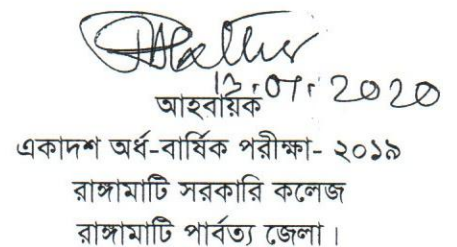 13.01.2020
আহবায়ক
একাদশ অর্ধ-বার্ষিক পরীক্ষা- ২০১৯
রাঙ্গামাটি সরকারি কলেজ
রাঙ্গামাটি পার্বত্য জেলা।